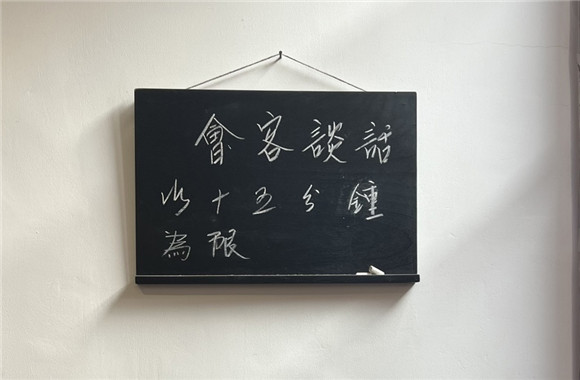 會客談話
以十五分鍾
為限